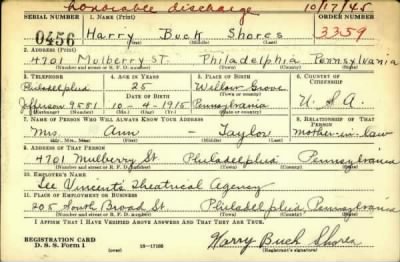 honorable discharge 10/17/45
SERIAL NUMBER 1. NAME (Print) ORDER NUMBER
0456 Harry Buck Shores 3359
(First) (Middle) (Last)
2. ADDRESS (Print)
4701 Mulberry St. Philadelphia Pennsylvania
(Number and street or R. F. D. number) (Town) (County) (State)
3. TELEPHONE 4. AGE IN YEARS 5. PLACE OF BIRTH 6. COUNTRY OF CITIZENSHIP
Philadelphia 25 Willow Grove
DATE OF BIRTH (Town or county)
Jefferson 9581 10-4-1915 Pennsylvania U.S.A.
(Exchange) (Number) (Mo.) (Day) (Yr.) (State or country)
7. NAME OF PERSON WHO WILL ALWAYS KNOW YOUR ADDRESS 8. RELATIONSHIP OF THAT PERSON
Mrs. Ann - Taylor Mother-in-law
(Mr., Mrs., Miss) (First) (Middle) (Last)
9. ADDRESS OF THAT PERSON
4701 Mulberry St Philadelphia Pennsylvania
(Number and street or R. F. D. number) (Town) (County) (State)
10. EMPLOYER'S NAME
Lee Vincent's Theatrical Agency
11. PLACE OF EMPLOYMENT OR BUSINESS
205 South Broad St Philadelphia, Pennsylvania
(Number and street or R. F. D. number) (Town) (County) (State)
I AFFIRM THAT I HAVE VERIFIED ABOVE ANSWERS AND THAT THEY ARE TRUE.
REGISTRATION CARD
D. S. S. Form 1 16-17105 Harry Buck Shores
(Registrant's signature)